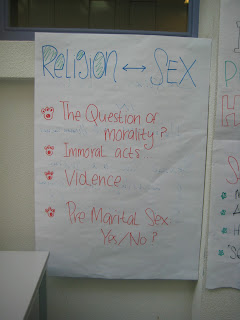 Religion ↔ SEX
The Question of
morality?
Immoral acts
Vidence
Pre Marital Sex
Yes/No?